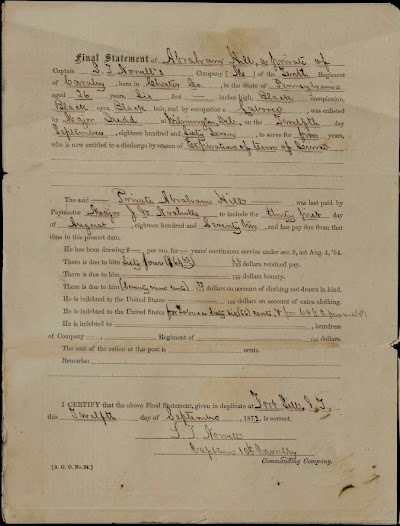 Final Statement of Abraham Hill, a private of
Captain S. T. Norvell's Company [M] of the Tenth Regiment
of Cavalry, born in Chester Co., in the State of Pennsylvania
aged 26 years, Six feet inches high, Black complexion,
Black eyes, Black hair, and by occupation a Laborer was enlisted
by Major Ladd at Wilmington, Del., on the Twelfth day
September, eighteen hundred and Sixty Seven, to serve for five years,
who is now entitled to a discharge by reason of Expiration of term of Service
The said Private Abraham Hill was last paid by
Paymaster Major J. W. to include the thirty first day
of August, eighteen hundred and Seventy two, and has pay due from that
time to the present date.
He has been drawing $ per mo. for years' continuous service under sec. 2, act Aug. 4, '54.
There is due to him Sixty four dollars retained pay.
There is due to him dollars bounty.
There is due to him (Seventy nine cents) dollars on account of clothing not drawn in kind.
He is indebted to the United States dollars on account of extra clothing.
He is indebted to the United States for Tobacco Sixty cents, & for
He is indebted to , laundress
of Company , Regiment of dollars.
The cost of the ration at this post is cents.
Remarks:
I CERTIFY that the above Final Statement, given in duplicate at Fort Sill, I. T.
this Twelfth day of September, 1872, is correct.
S. T. Norvell
Captain 10th Cavalry
Commanding Company.
[A. G. O. No. 34.]